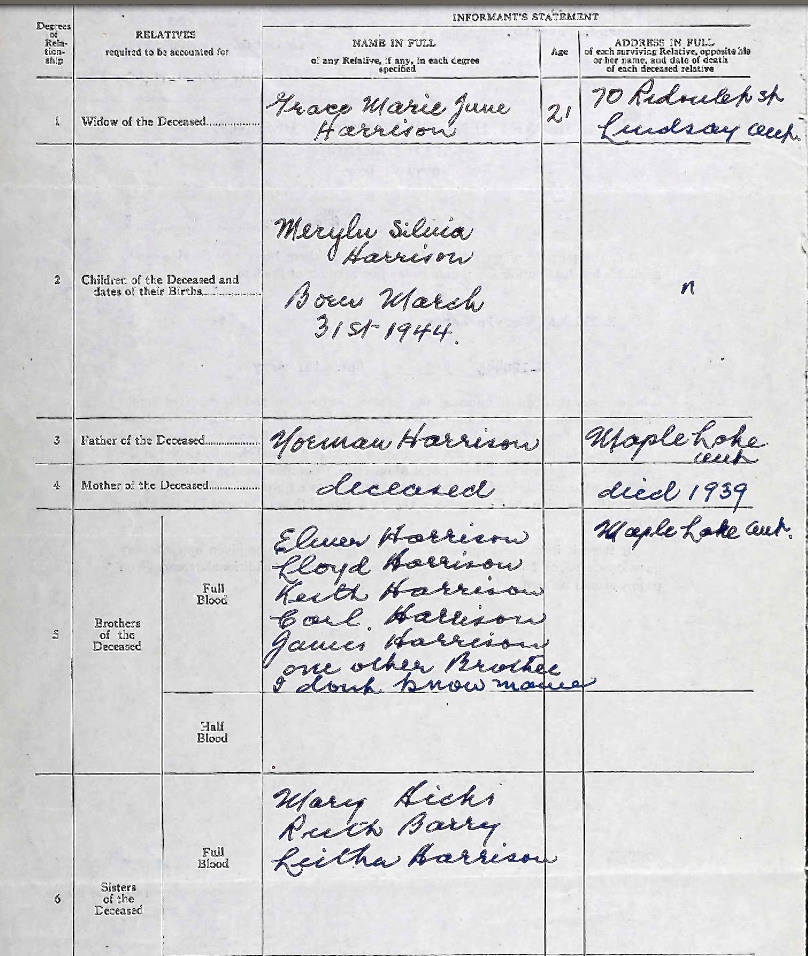 INFORMANT'S STATEMENT
Degrees
of
Rela-
tion-
ship
RELATIVES
required to be accounted for
NAME IN FULL
of any Relative, if any, in each degree
specified
Age
ADDRESS IN FULL
of each surviving Relative, opposite his
or her name, and date of death
of each deceased relative
1
Widow of the Deceased
Grace Marie June
Harrison
21
70 st
Lindsay Ont.
2
Children of the Deceased and
dates of their Births
Merylu Silvia
Harrison
Born March
31st 1944.
"
3
Father of the Deceased
Norman Harrison
Maple Lake
Ont
4
Mother of the Deceased
deceased
died 1939
5
Brothers
of the
Deceased
Full
Blood
Elmer Harrison
Lloyd Harrison
Keith Harrison
Carl Harrison
James Harrison
one other Brother
I dont know name
Maple Lake Ont.
Half
Blood
6
Sisters
of the
Deceased
Full
Blood
Mary Hicks
Ruth Barry
Leitha Harrison